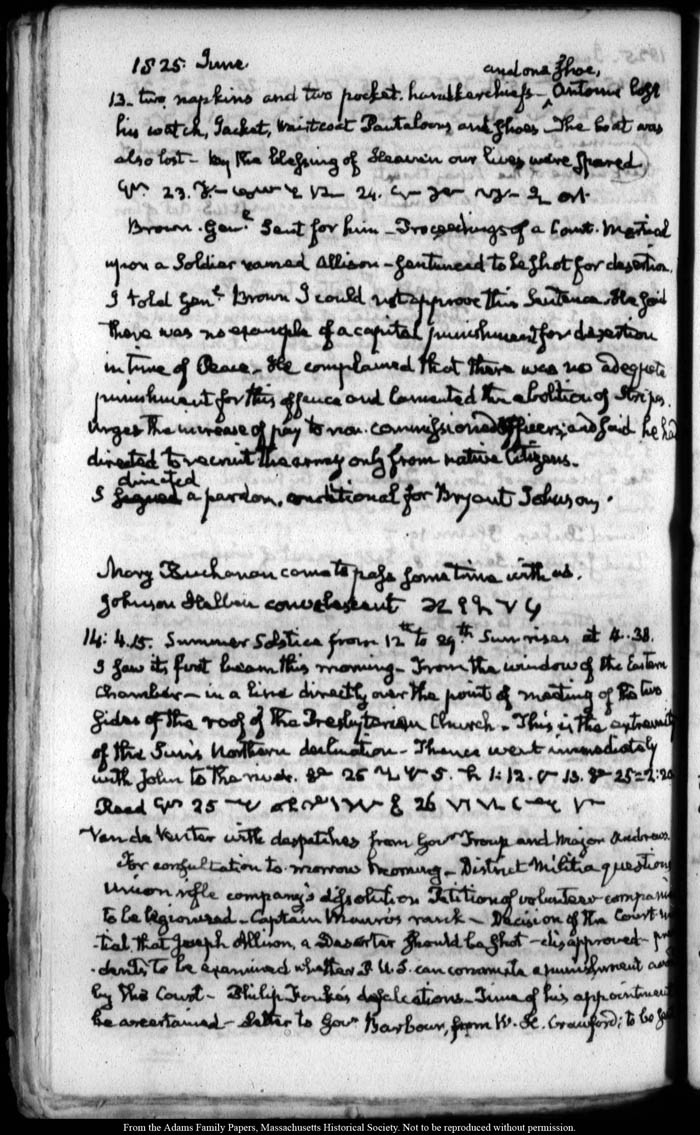 1825. June.
and one Shoe,
13. two napkins and two pocket handkerchiefs – Antoine lost
his watch, Jacket, Waistcoat Pantaloons and Shoes – The boat was
also lost – by the blessing of Heaven our lives were spared
23. 24.
Brown. Genl. Sent for him – Proceedings of a Court. Martial
upon a Soldier named Allison – sentenced to be shot for desertion.
I told Genl. Brown I could not approve this Sentence. He said
there was no example of a capital punishment for desertion
in time of Peace – He complained that there was no adequate
punishment for this offence and lamented the abolition of Stripes.
urges the increase of pay to non. commissioned Officers; and said he had
directed to recruit the army only from native Citizens –
directed
I signed a pardon, conditional for Bryant Johnson.
Mary Buchanan came to pass some time with us.
Johnson Hellen convalescent
14: 4.15. Summer Solstice from 12th to 29th Sun rises at 4..38.
I saw its first beam this morning – From the window of the Eastern
Chamber – in a line directly over the point of meeting of the two
sides of the roof of the Presbyterian Church – This is the extremity
of the Sun's Northern declination – Thence went immediately
with John to the river. 25 5. 1:12. 13. 25=2:20
Read 25 26
Van de Venter with despatches from Govr. Troup and Major Andrews
For consultation to morrow morning – District Militia questions
Union rifle company's dissolution Petition of volunteer companies
to be legioned – Captain Mauro's rank – Decision of the Court
tial that Joseph Allison, a Deserter should be shot – disapproved –
dents to be examined whether P. U.S. can commute a punishment
by the Court – Philip Fouke's defalcations – Time of his appointment
be ascertained – Letter to Govr. Barbour, from W. H. Crawford; to be
From the Adams Family Papers, Massachusetts Historical Society. Not to be reproduced without permission.